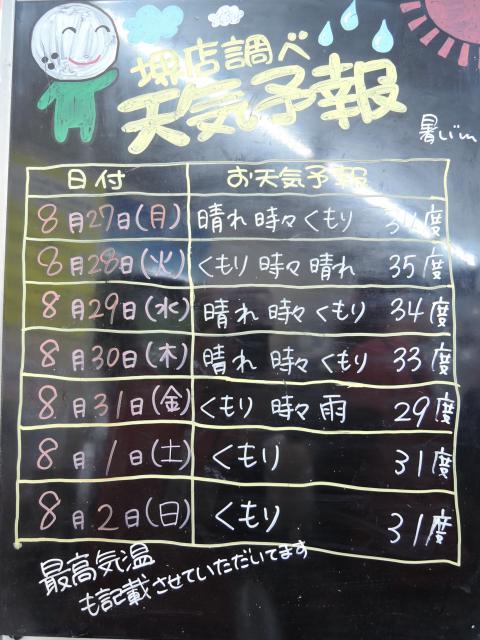 堺店調べ
天気予報
暑い〜
日付 お天気予報
8月27日(月) 晴れ時々くもり 度
8月28日(火) くもり時々晴れ 35度
8月29日(水) 晴れ時々くもり 34度
8月30日(木) 晴れ時々くもり 33度
8月31日(金) くもり時々雨 29度
8月1日(土) くもり 31度
8月2日(日) くもり 31度
最高気温
も記載させていただいてます